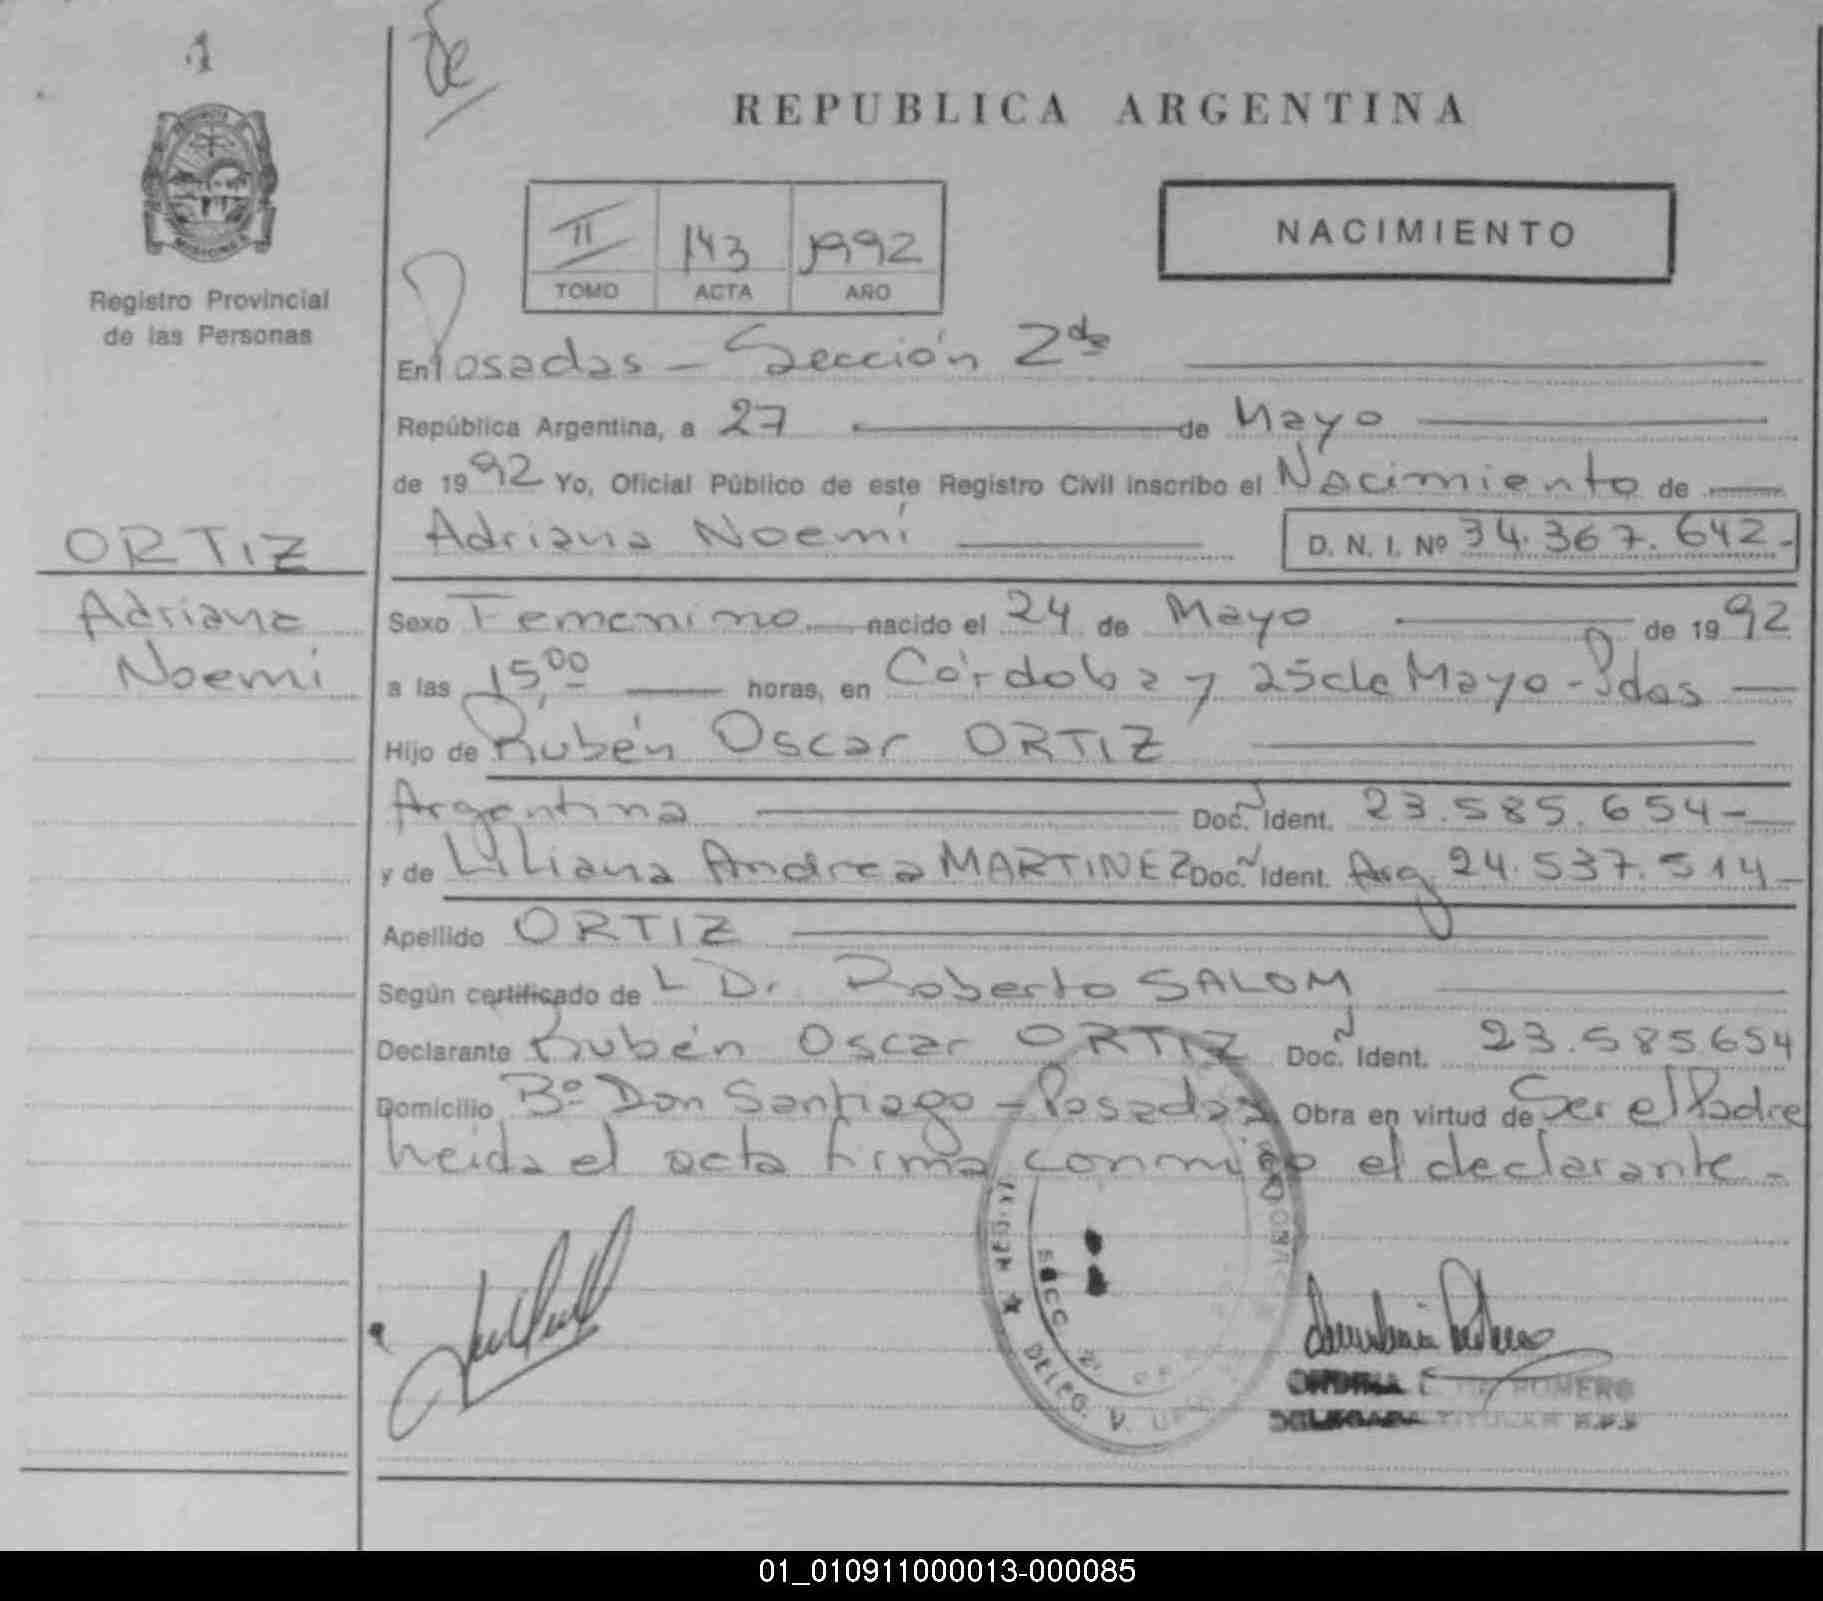 1
de
REPUBLICA ARGENTINA
II 143 1992
TOMO ACTA AÑO
NACIMIENTO
Registro Provincial
de las Personas
En Posadas - Sección 2da
República Argentina, a 27 de Mayo
de 1992 Yo, Oficial Público de este Registro Civil inscribo el Nacimiento de
Adriana Noemí D. N. I. Nº 34.367.642-
ORTIZ
Adriana
Noemí
Sexo Femenino nacido el 24 de Mayo de 1992
a las 15,00 horas, en Córdoba y 25 de Mayo - Pdas
Hijo de Rubén Oscar ORTIZ
Argentina Doc. Ident. 23.585.654-
y de Liliana Andrea MARTINEZ Doc. Ident. Arg 24.537.514-
Apellido ORTIZ
Según certificado de L Dr. Roberto SALOM
Declarante Rubén Oscar ORTIZ Doc. Ident. 23.585.654
Domicilio Bº Don Santiago - Posadas Obra en virtud de Ser el Padre
Leida el acta firma conmigo el declarante -
SECC
DELEG.
DE ROMERO
TITULAR R.P.P
01_010911000013-000085